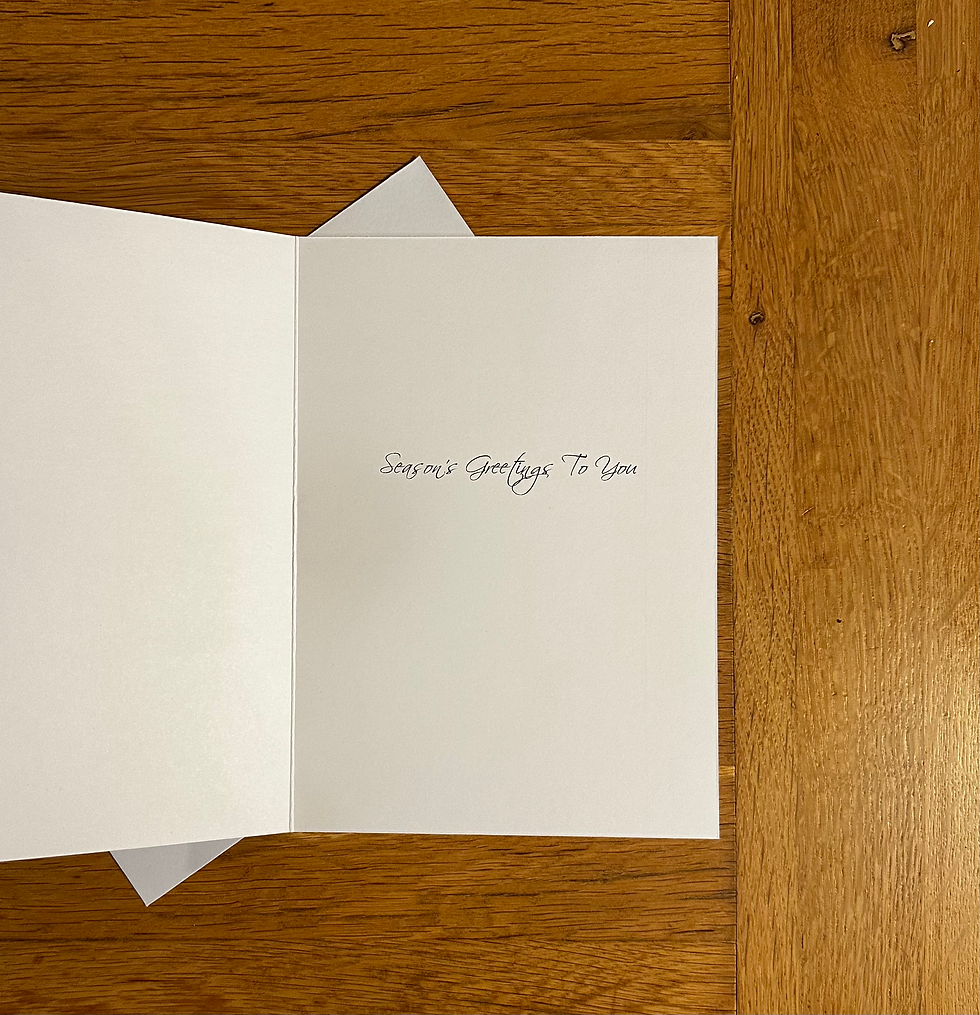 Season's Greetings To You